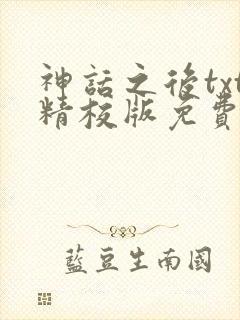 神話之後txt
精校版免費
藍豆生南國